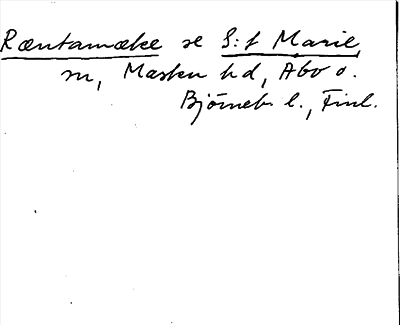 Ræntamæke se S:t Marie,
sn, Masku hd, Åbo o.
Björneb. l., Finl.